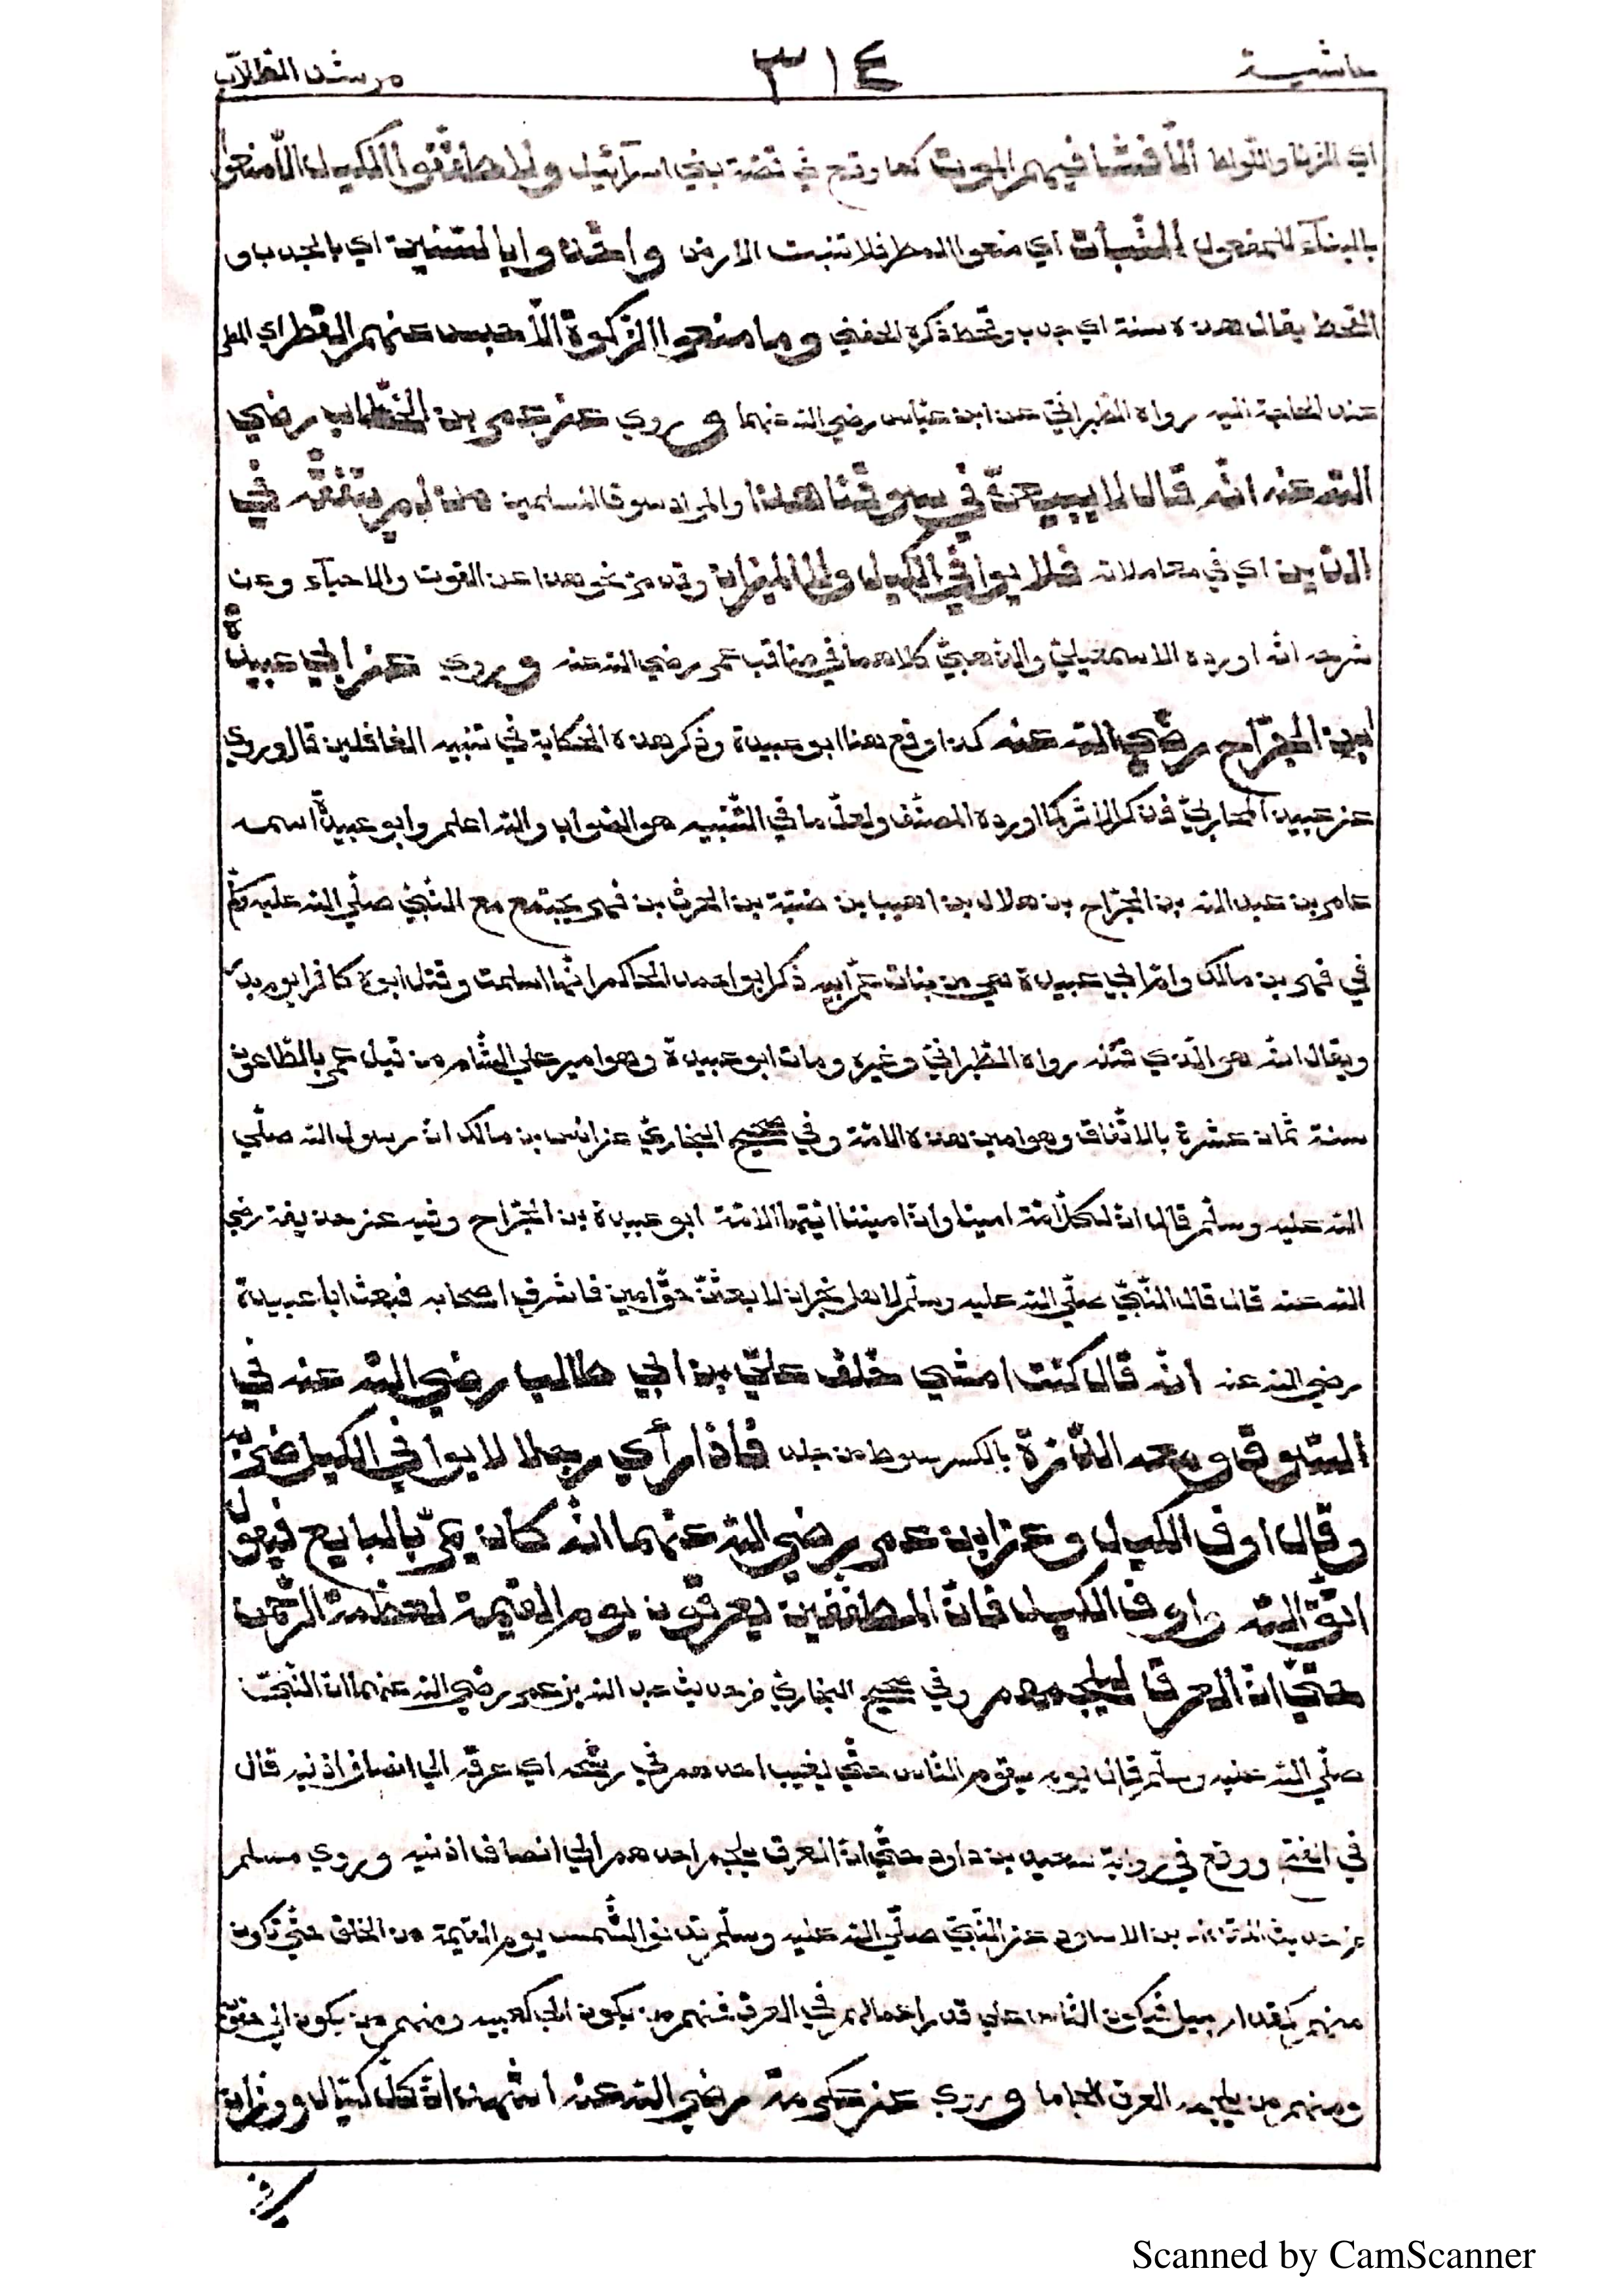 حاشية ٣١٤ مرشد الطلاب
اي الزنا واللواط الا فشا فيهم الموت كما وقع في قصة بني اسرآئيل ولا طففوا المكيال الا منعوا
بالبنآء للمفعول النبات اي منعوا المطر فلا تنبت الارض واخذوا بالسنين اي بالجدب و
القحط يقال هذه سنة اي جدب وقحط ذكره الحفني وما منعوا الزكوة الا حبس عنهم القطر اي المطر
عند الحاجة اليه رواه الطبراني عن ابن عباس رضي الله عنهما وروي عن عمر بن الخطاب رضي
الله عنه انه قال لا يبيعن في سوقنا هذا والمراد سوق المسلمين من لم يتفقه في
الدين اي في معاملاته فلا يوافي الكيل ولا الميزان وقد مر نحو هذا عن القوت والاحيآء وعن
شرحه انه اورده الاسمعيلي والذهبي كلاهما في مناقب عمر رضي الله عنه وروي عن ابي عبيدة
ابن الجراح رضي الله عنه كذا وقع هنا ابو عبيدة وذكر هذه الحكاية في تنبيه الغافلين قال وروي
عن عبيد المحاربي فذكر الاثر كما اورده المصنف ولعل ما في التنبيه هو الصواب والله اعلم وابو عبيدة اسمه
عامر بن عبد الله بن الجراح بن هلال بن اهيب بن ضبة بن الحرث بن فهر يجتمع مع النبي صلى الله عليه وسلم
في فهر بن مالك وام ابي عبيدة هي من بنات عم ابيه ذكر ابو احمد الحاكم انها اسلمت وقتل ابوه كافرا يوم بدر
ويقال انه هو الذي قتله رواه الطبراني وغيره ومات ابو عبيدة وهو امير علي الشام من قبل عمر بالطاعون
سنة ثمان عشرة بالاتفاق وهو امين هذه الامة وفي صحيح البخاري عن انس بن مالك ان رسول الله صلي
الله عليه وسلم قال ان لكل امة امينا وان اميننا ايتها الامة ابو عبيدة بن الجراح وفيه عن حذيفة رضي
الله عنه قال قال النبي صلي الله عليه وسلم لاهل نجران لابعثن حق امين فاشرف اصحابه فبعث ابا عبيدة
رضي الله عنه انه قال كنت امشي خلف علي بن ابي طالب رضي الله عنه في
السوق ومعه الدرة بالكسر سوط من جلد فاذا رأي رجلا لا يوافي الكيل ضربه
وقال اوف الكيل وعن ابن عمر رضي الله عنهما انه كان يمر بالبايع فيقول
اتق الله واوف الكيل فان المطففين يعرقون يوم القيمة لعظمة الرحمن
حتي ان العرق ليلجمهم وفي صحيح البخاري من حديث عبد الله بن عمر رضي الله عنهما ان النبي
صلي الله عليه وسلم قال يوم يقوم الناس حتي يغيب احدهم في رشحه اي عرقه الي انصاف اذنيه قال
في الفتح ووقع في رواية سعيد بن داود حتي ان العرق يلجم احدهم الي انصاف اذنيه وروي مسلم
من حديث المقداد بن الاسود عن النبي صلي الله عليه وسلم تدنو الشمس يوم القيمة من الخلق حتي تكون
منهم كمقدار ميل فيكون الناس علي قدر اعمالهم في العرق فمنهم من يكون الي كعبيه ومنهم من يكون الي حقويه
ومنهم من يلجمه العرق الجاما وروي عن عكرمة رضي الله عنه اشهد ان كل كيال ووزان
Scanned by CamScanner